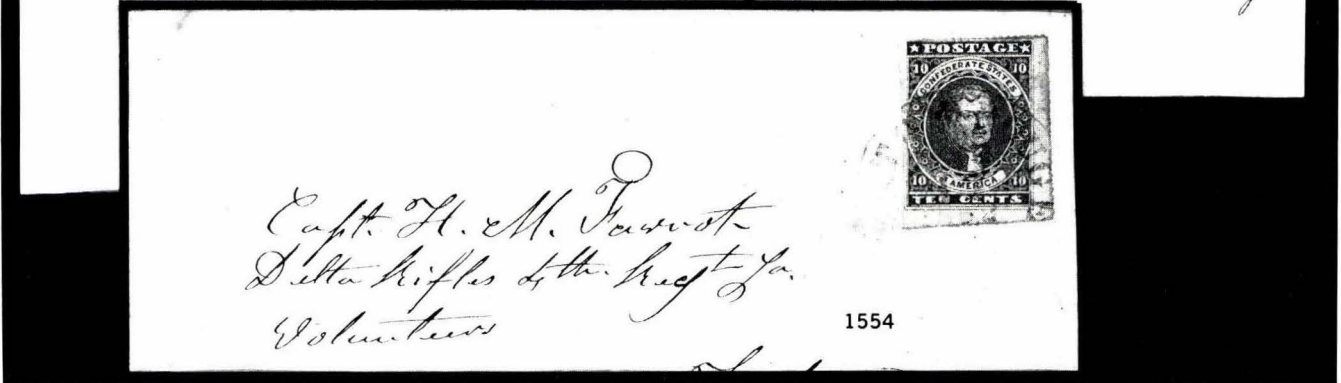 ★ POSTAGE ★
10 CONFEDERATE STATES 10
10 AMERICA 10
TEN CENTS
Capt. H. M. Favrot
Delta Rifles 4th. Regt La.
Volunteers
1554